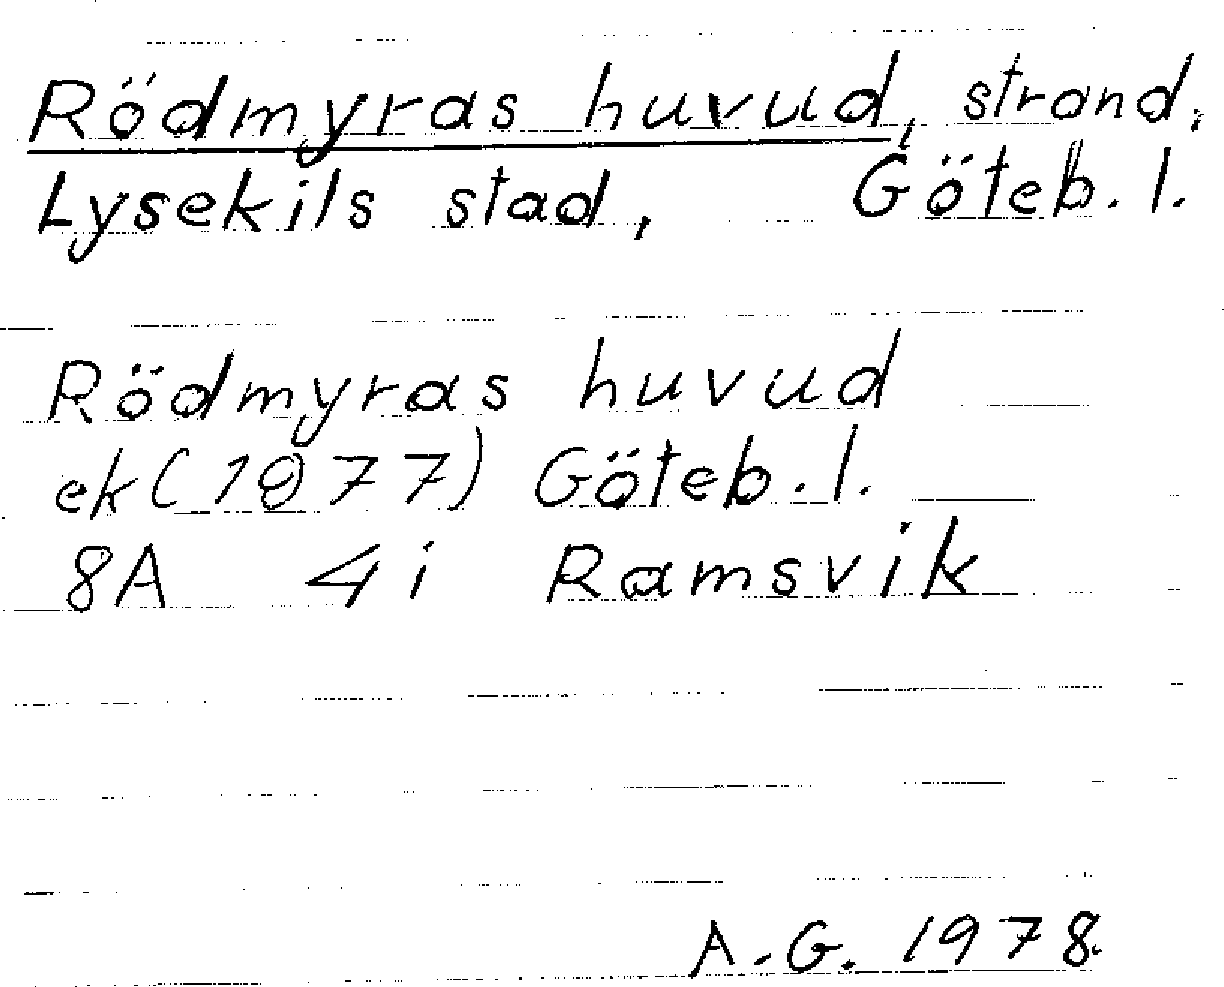 Rödmyras huvud, strand.
Lysekils stad, Göteb. l.
Rödmyras huvud
ek (1977) Göteb. l.
8A 4i Ramsvik
A.G. 1978.